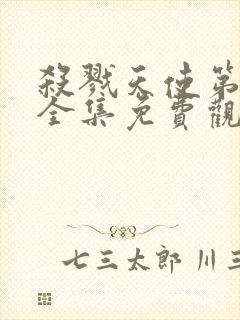 殺戮天使第
全集免費觀
七三太郎 川三